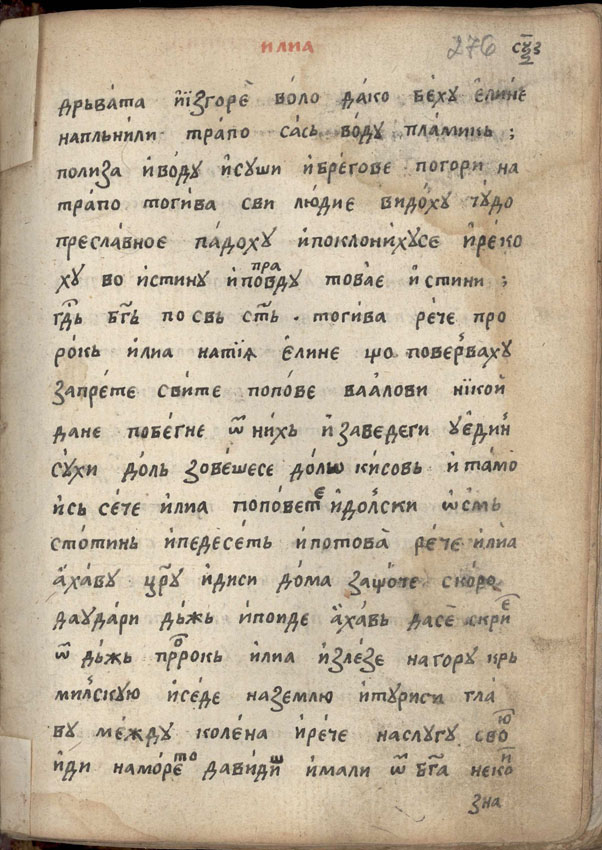 илиа 276 сѵ҃з
дрьва́та и҆и҆згорѐ во́ло да́ко бе́ху є҆ли́не
напльни́ли тра́по са́сь во́ду пла́микь ;
поли́за и҆во́ду и҆суши и҆бре́гове погори на
тра́по тоги́ва сви лю́дие видо́ху чу́до
пресла́вное па́доху и҆поклони́хусе и҆ре́ко
ху во и҆́стину и҆пра повду това̀е и҆́стини ;
гд҃ь бг҃ь по свь ст҃ь . тоги́ва ре́че про
ро́кь и҆лиа натїѧ е҆́лине що поверваху
запре́те сви́те попо́ве ваа́лови нїкой
дане побе́гне ѿ ни́хь и҆ заведеги у е҆ди́н
су́хи до́ль зове́шесе до́лѡ ки́совь и҆ та́мо
и҆сь се́че и҆лиа попо́вете и҆до́лски ѡ҆́смь
сто́тинь и҆педесе́ть и҆потова̀ ре́че и҆лїа
а҆ха́ву цр҃у и҆диси до́ма защо́те ско́ро
дауда́ри дь́жь и҆поиде а҆ха́вь дасѐ скрїе
ѿ дь́жь пр҃ро́кь и҆лиа и҆зле́зе нагору крь
ми́лскую и҆се́де назе́млю и҆тури́си гла
ву ме́жду коле́на и҆ре́че наслу́гу свою
и҆́ди намо́рето дави́диш и҆́мали ѿ бг҃а не́кой
зна